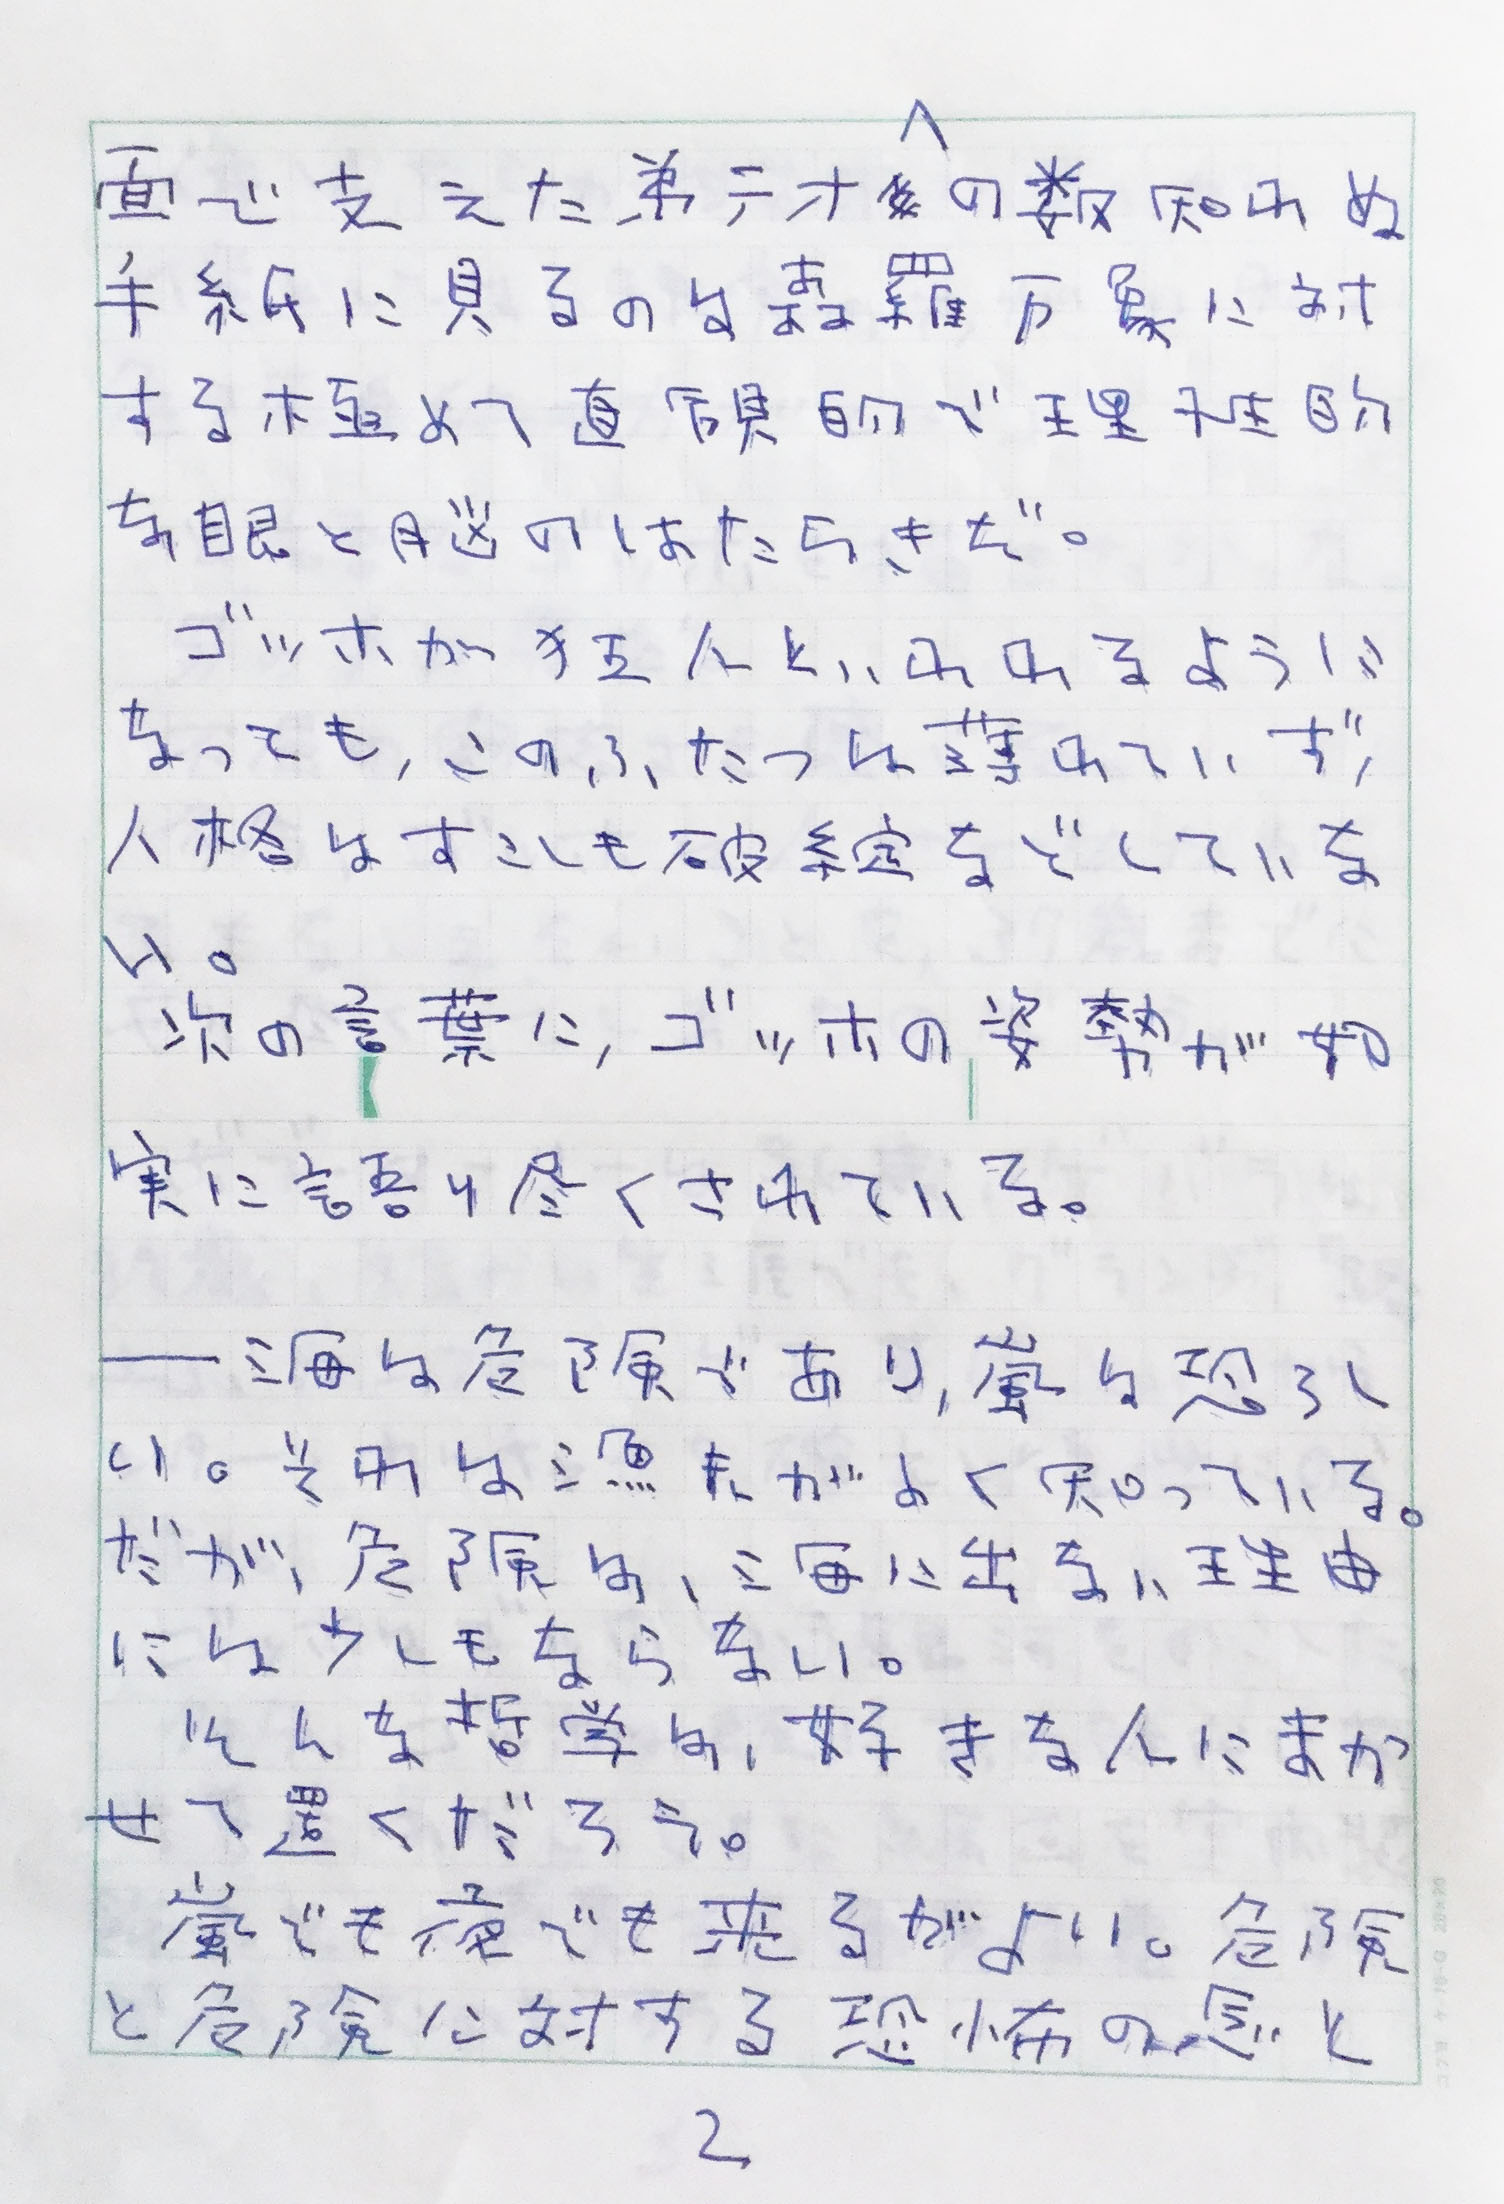 面で支えた弟テオへの数知れぬ
手紙に見るのは森羅万象に対
する極めて直観的で理性的
な眼と脳のはたらきだ。
ゴッホが狂人といわれるように
なっても、このふたつは薄れていず、
人格はすこしも破綻などしていな
い。
次の言葉に、ゴッホの姿勢が如
実に語り尽くされている。
――海は危険であり、嵐は恐ろし
い。それは漁夫がよく知っている。
だが、危険は、海に出ない理由
には少しもならない。
そんな哲学は、好きな人にまか
せて置くだろう。
嵐でも夜でも来るがよい。危険
と危険に対する恐怖の念と
2